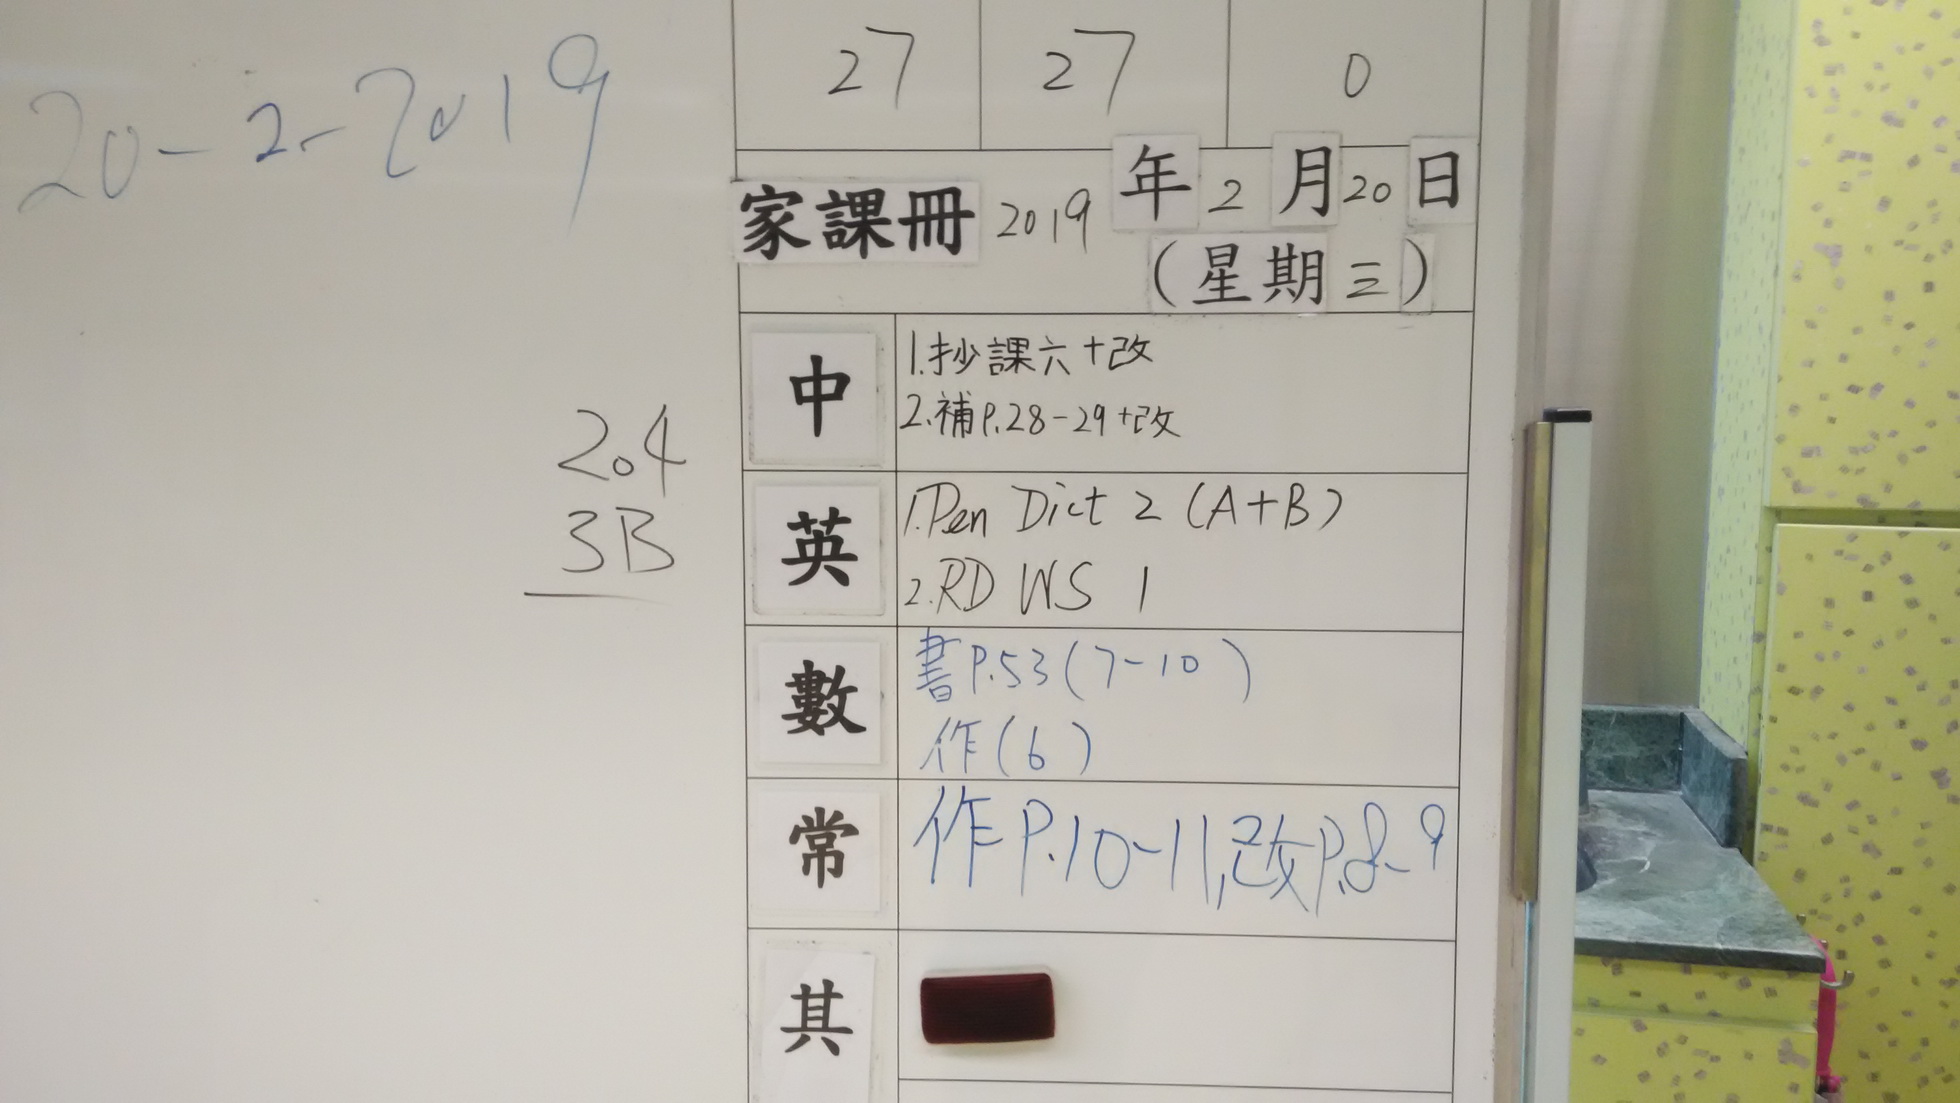 20-2-2019
27 27 0
家課冊 2019 年 2 月 20 日
(星期三)
204
3B
中
1.抄課六+改
2.補P.28-29+改
英
1.Pen Dict 2 (A+B)
2.RD WS 1
數
書P.53(7-10)
作(6)
常
作P.10-11,改P.8-9
其